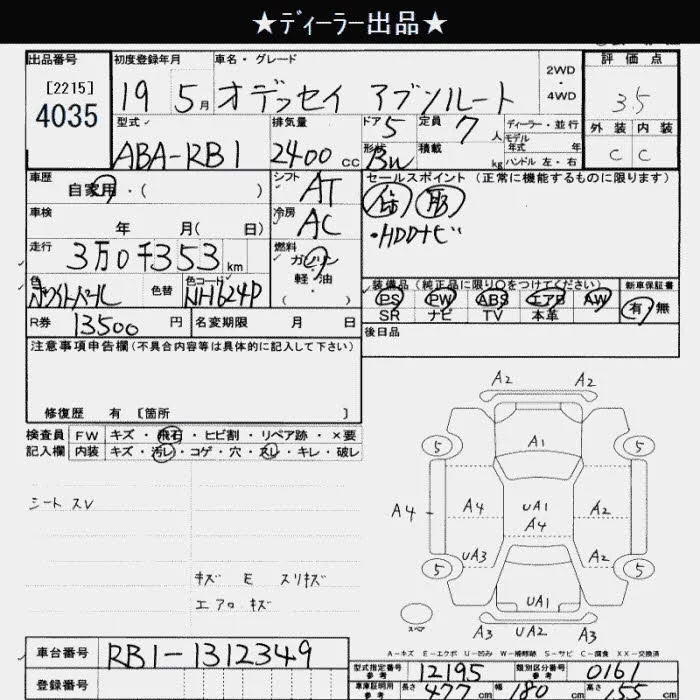 ★ディーラー出品★
出品番号 初度登録年月 車名・グレード 評価点
[2215] 19 5月 オデッセイ アブソルート 2WD・4WD 3.5
4035
型式 排気量 ドア 5 定員 7人 ディーラー・並行 外装 内装
ABA-RB1 2400cc 形状 BW 積載 kg モデル年式 年 C C
ハンドル 左・右
車歴 シフト セールスポイント (正常に機能するものに限ります)
自家用・( ) AT
車検 冷房 ・HDDナビ
年 月( 日) AC
走行 燃料
3万0千353km ガソリン・軽・油・( )
色 色替 色コード 装備品(純正品に限り○をつけてください) 新車保証書
ホワイトパール NH624P PS PW ABS エアB AW 有・無
SR ナビ TV 本革
R券 13500円 名変期限 月 日 後日品
注意事項申告欄(不具合内容等は具体的に記入して下さい)
修復歴 有 [箇所 ]
検査員 FW キズ・飛石・ヒビ割・リペア跡・×要
記入欄 内装 キズ・汚レ・コゲ・穴・スレ・キレ・破レ
シート スレ
キズ E スリキズ
エアロ キズ
A2 A2
5 A1 5
A4 A4 UA1 A2
A4
UA3 A2
5 5
UA1
スペア A3 UA2 A3
A-キズ E-エクボ U-凹み W-補修跡 S-サビ C-腐食 XX-交換済
車台番号 RB1-1312349
登録番号
型式指定番号 参考 12195 類別区分番号 参考 0161
車庫証明用 参考 長さ 477cm 幅 180cm 高さ 155cm